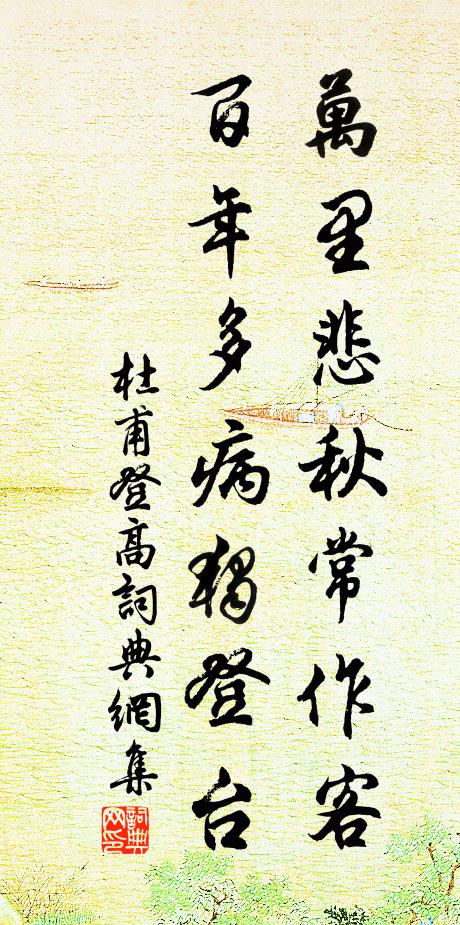 萬里悲秋常作客
百年多病獨登台
杜甫登高詞典網集
詞典網印